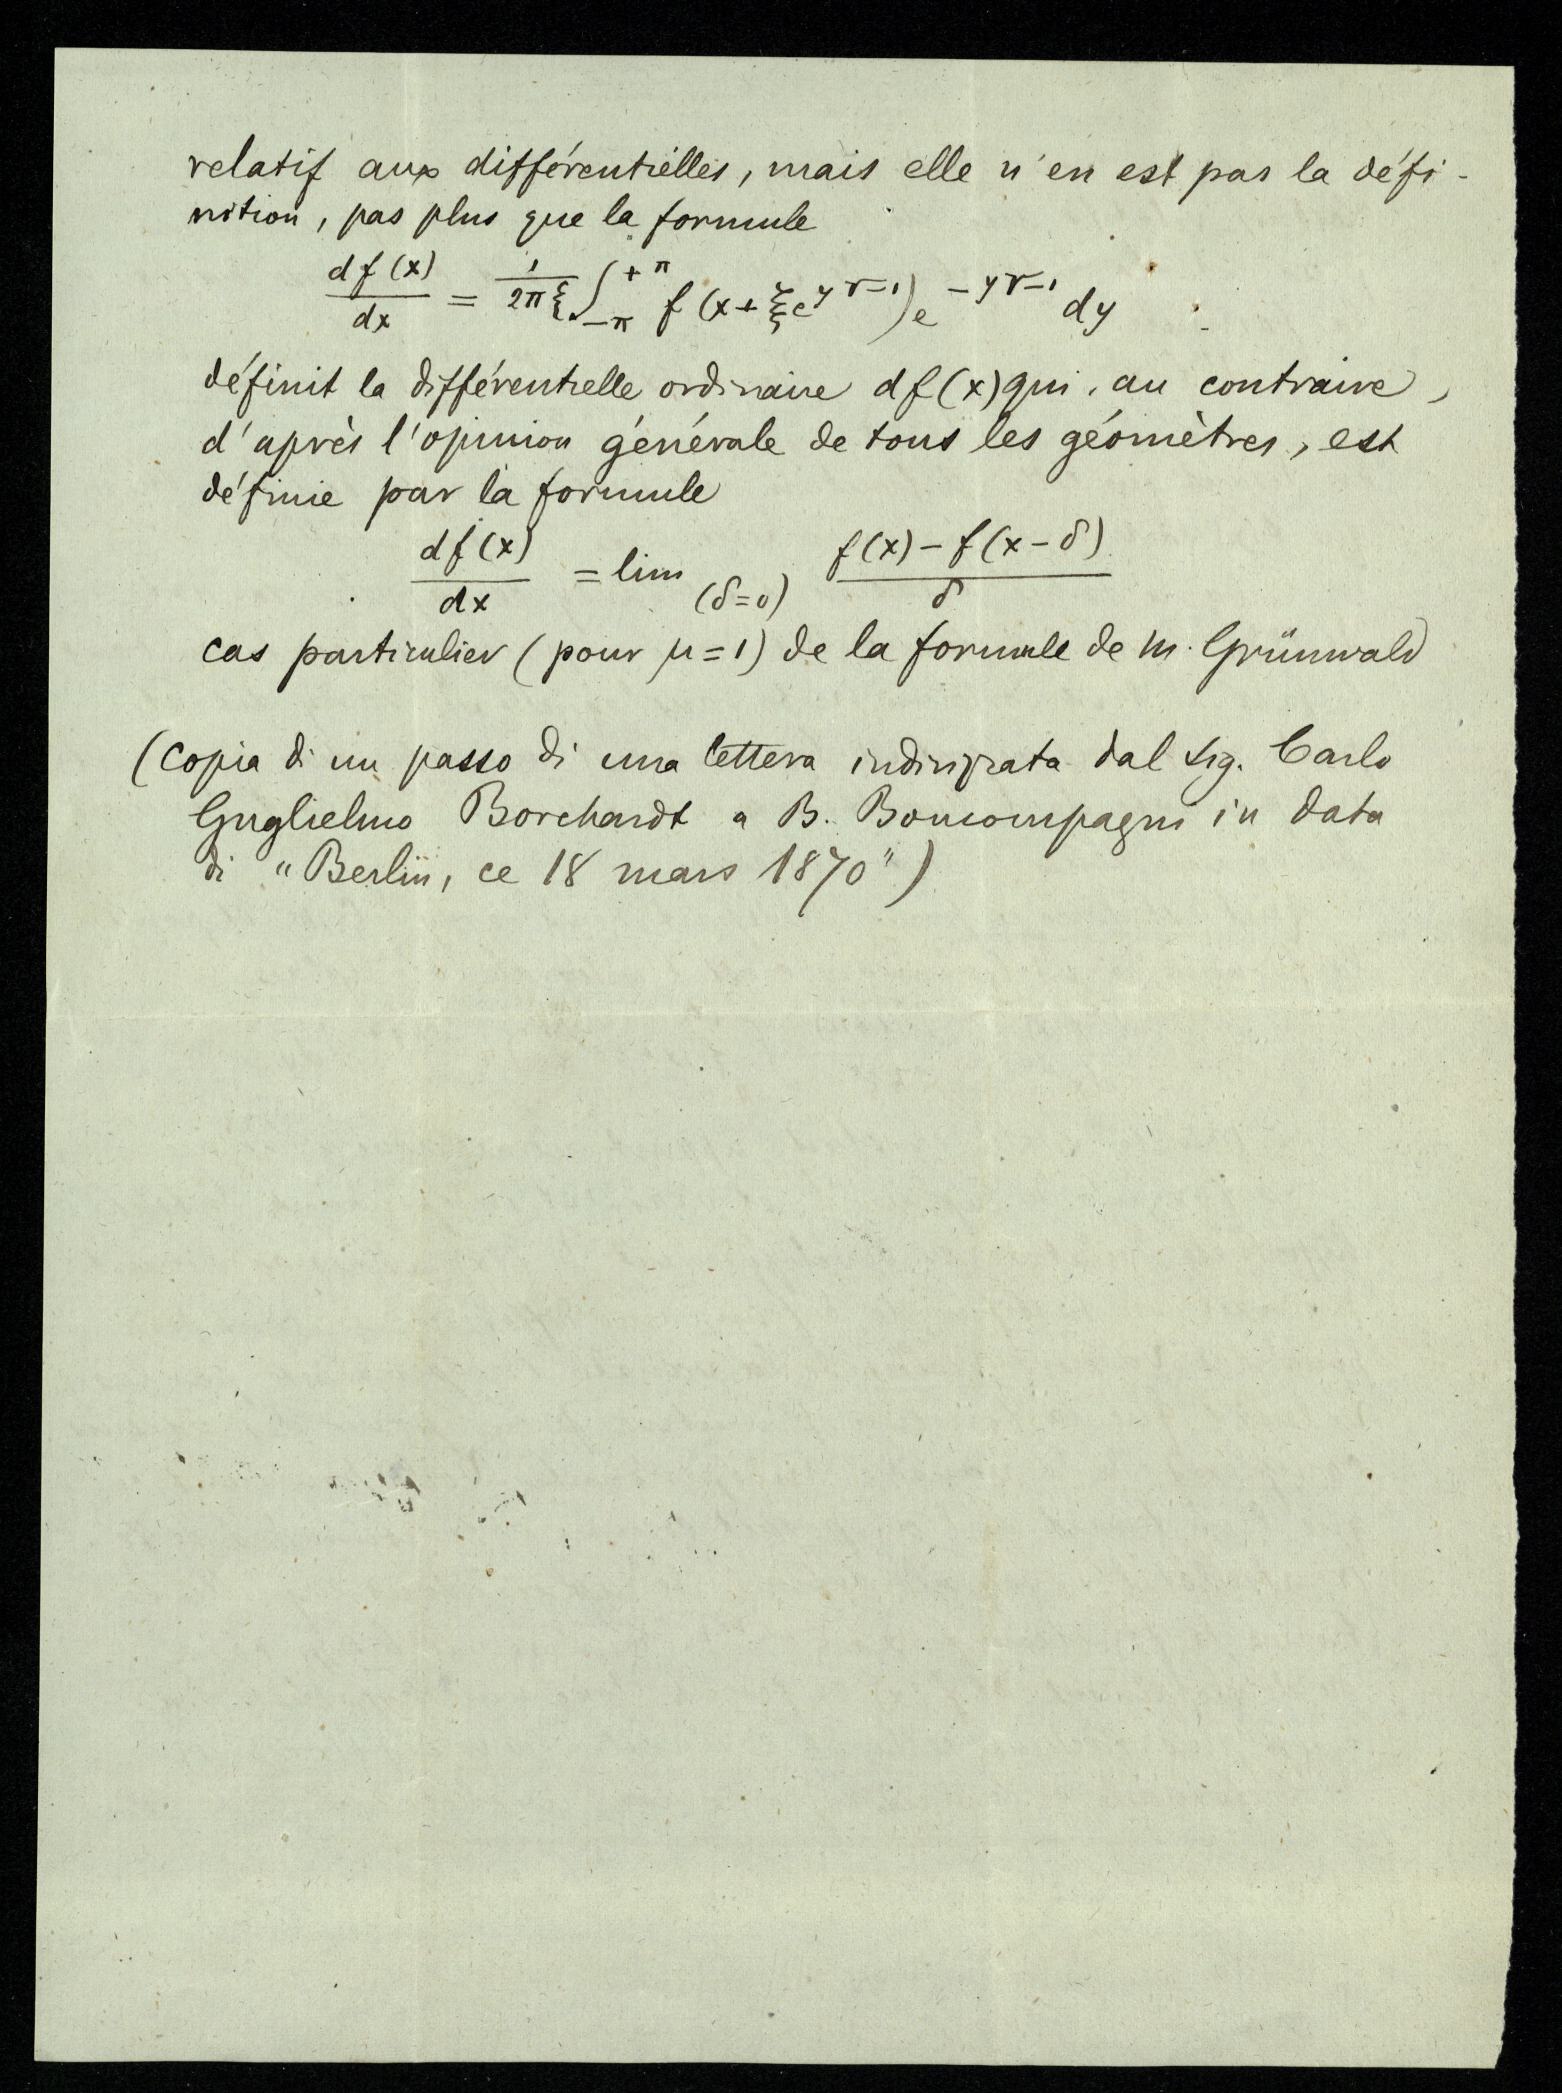 relatif aux différentielles, mais elle n'en est pas la défi-
nition, pas plus que la formule
df(x)/dx = 1/2πξ ∫_{-π}^{+π} f(x+ξe^{y√-1})e^{-y√-1} dy
définit la différentielle ordinaire df(x) qui, au contraire,
d'après l'opinion générale de tous les géomètres, est
définie par la formule
df(x)/dx = lim (δ=0) f(x)-f(x-δ)/δ
cas particulier (pour μ=1) de la formule de M. Grünwald
(Copia di un passo di una lettera indirizzata dal Sig. Carlo
Guglielmo Borchardt a B. Boncompagni in data
di "Berlin, ce 18 mars 1870")